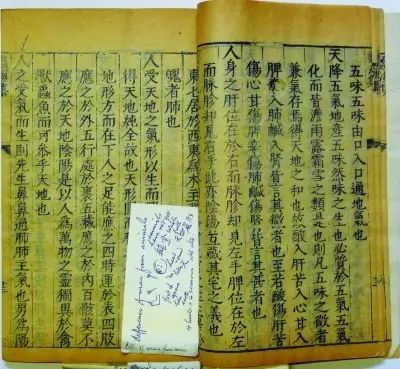 五味五由口入口通地氣也
天降五氣地產五味然味之生也必資於五氣五氣
化而皆澹雨露霜雪之類是也則凡五味之微者
兼氣存焉得天地之和也故酸入肝苦入心甘入
脾辛入肺鹹入腎皆言其微者也至若酸傷肝苦
傷心甘傷脾辛傷肺鹹傷腎皆言其甚者也
人身之肝位在於右而脉診却見左手脾位在於左
而脉診却見右手此亦陰陽互藏其宅之義也
東七居於西東為木主
魄者肺也
人受天地之氣形以生而
得天地純全故也天形圓
地形方而在下人之足能應之四時運於表四肢
應之於外五行處於裏五臟應之於內百骸莫不
應之於天地陰陽是以人為萬物之靈獨異於禽
獸蟲魚而可參乎天地也
人之受氣而生則先生鼻鼻通肺肺主氣也男為陽
Difference of man from animals